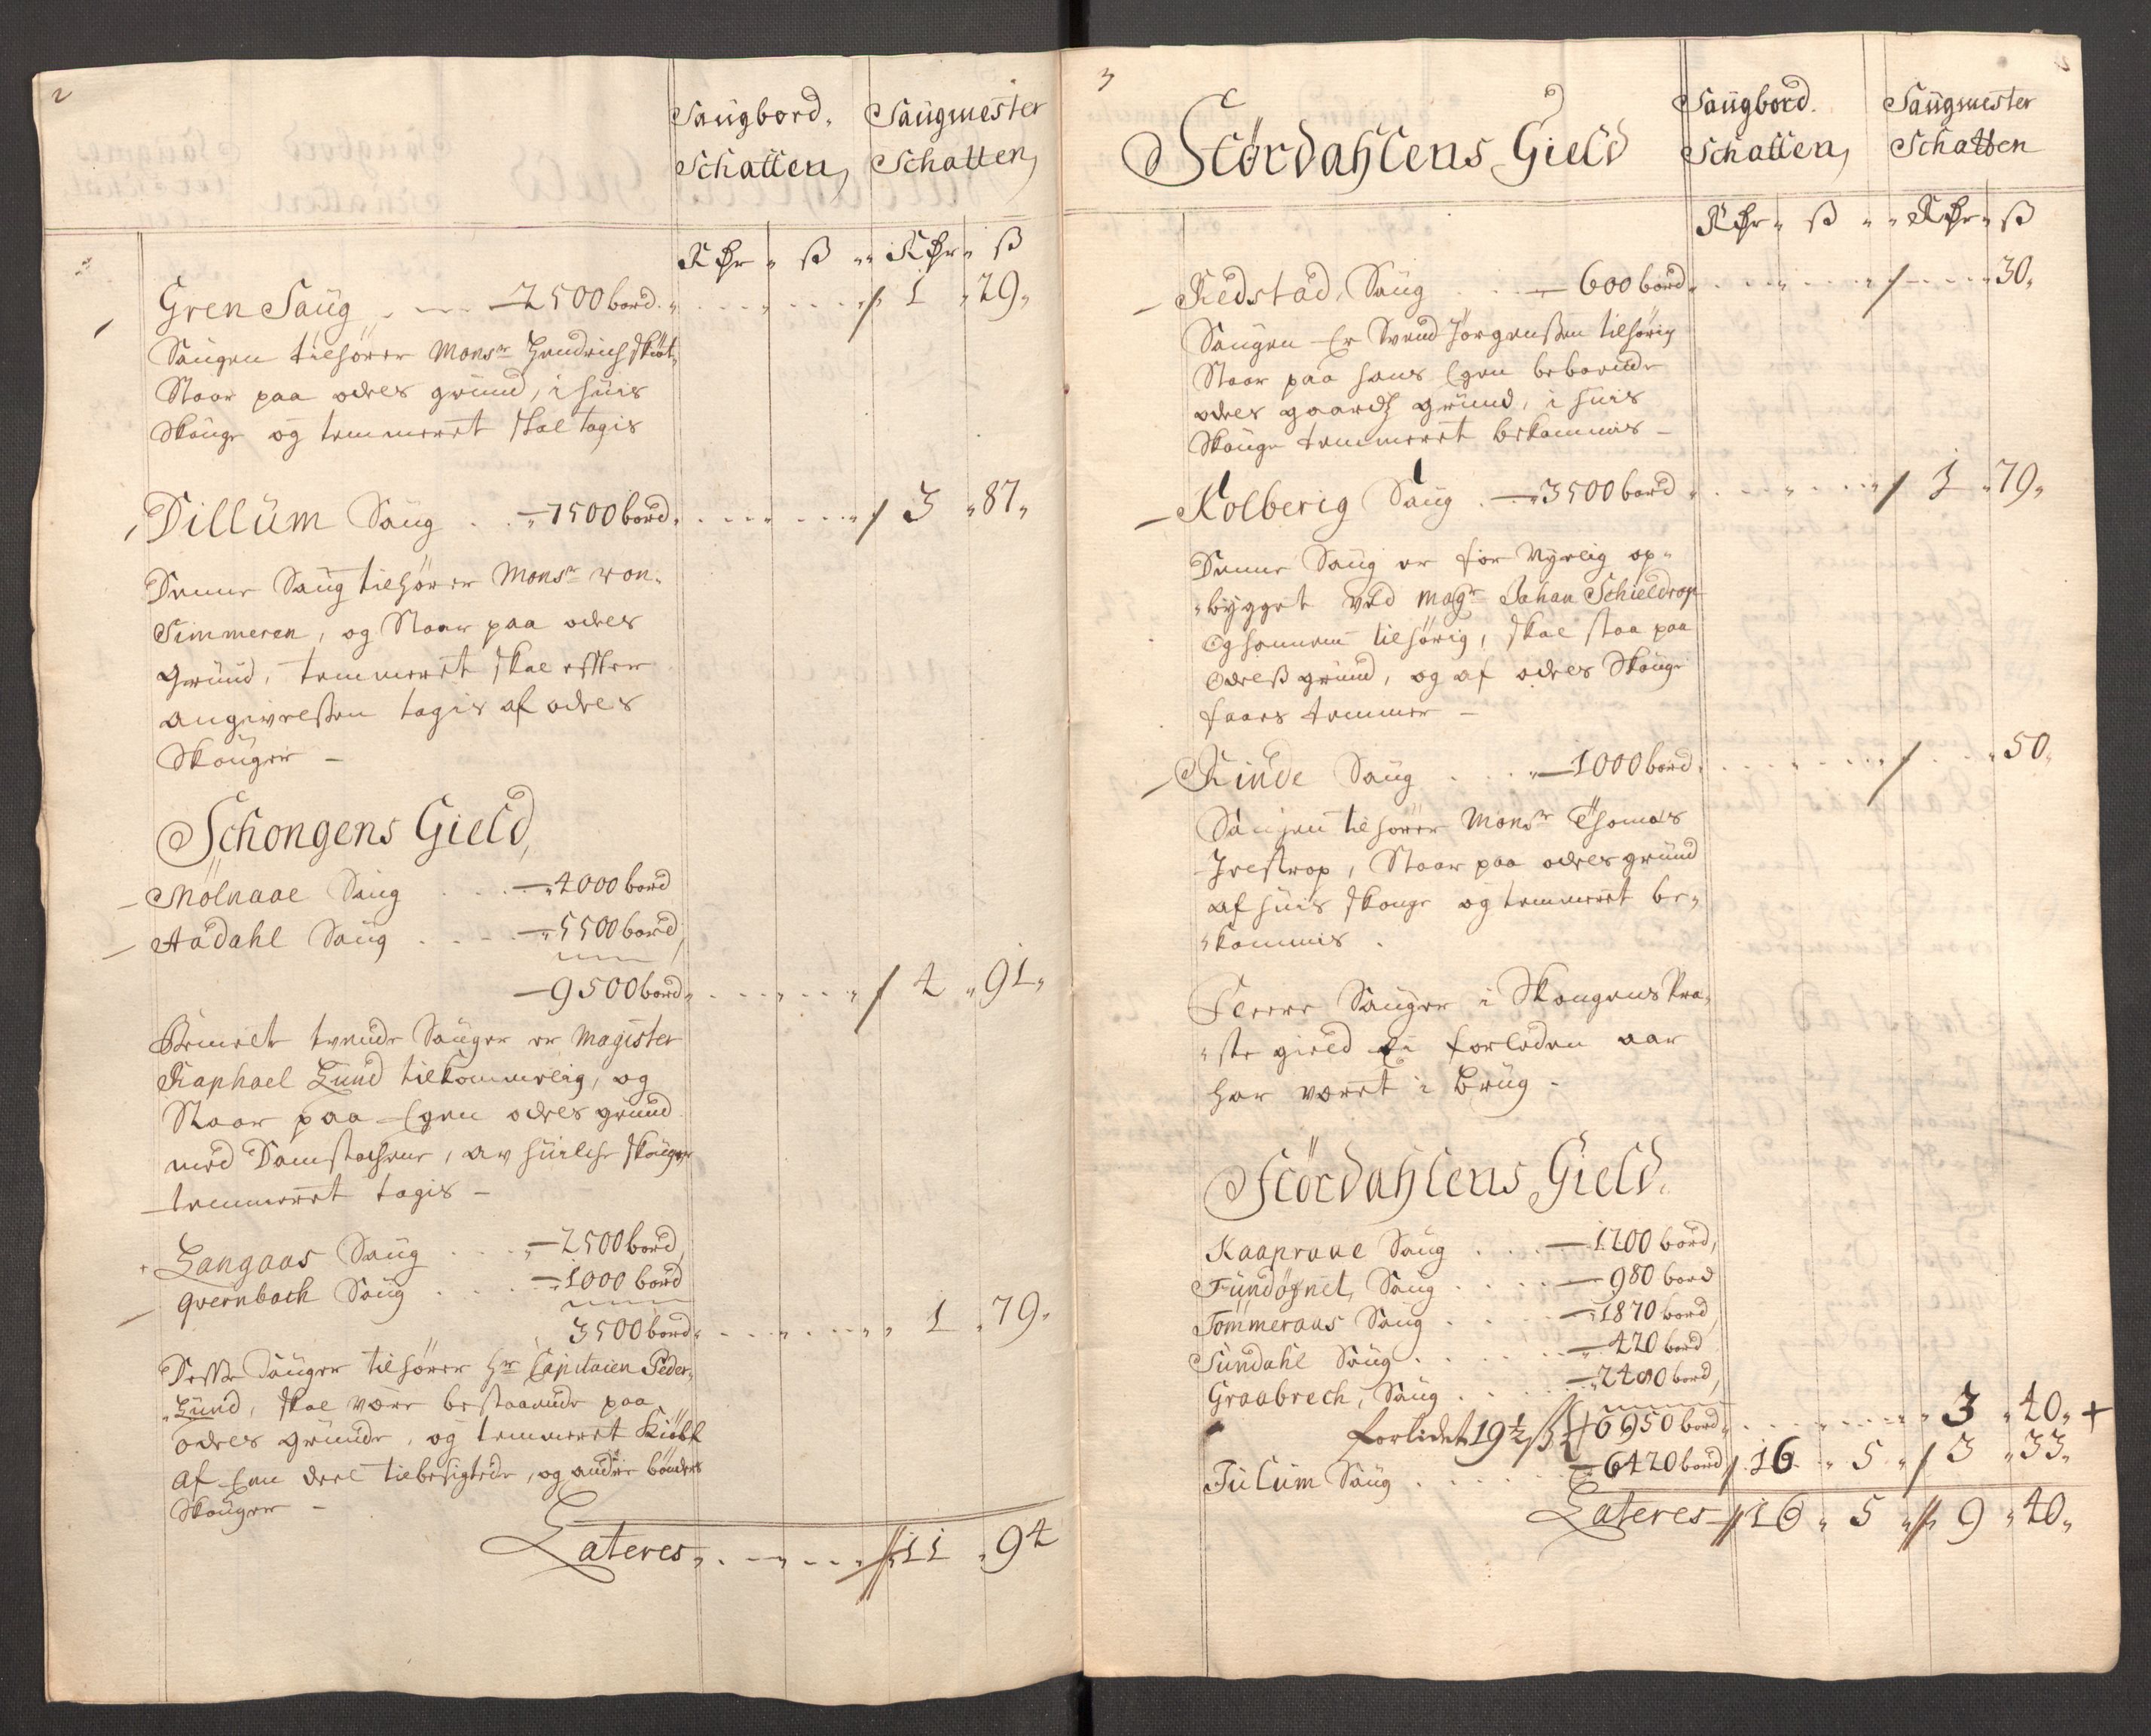 2
Saugbord, Saugmester
Schatten, Schatten,
Rdhr " ß " " Rdhr " ß
Gren Saug - 2500 bord. / 1 " 29 "
Saugen tilhører Monsr Hendrich
Staar paa odels grund, i huis
Skouge og temmeret skal tagis
Dillum Saug - 7500 bord / 3 " 87 "
Denne Saug tilhører Monsr von
Simmeren, og Staar paa odels
Grund, temmeret skal effter
angivelßen tagis af odels
Skouger -
Schongens Gield,
Mölnaae Saug - 4000 bord
Aadahl Saug - 5500 bord,
- 9500 bord " / 4 " 91 "
Bemelte tvende Sauger er Magister
Raphael Lund tilkommelig, og
Staar paa Egen odels grund
med Damstochene, av huilche skouge
temmeret tagis -
+ Langaas Saug - 2500 bord,
Qvernbech Saug - 1000 bord
3500 bord " 1 " 79 "
Desse Sauger tilhører Hr Capitaien Peder
Lund, skal være bestaaende paa
odels grunde, og temmeret Kiøbt
af Een deel tilbesigtede, og andre bønders
Skouger -
Lateres // 11 " 94
3
Stördahlens Gield
Saugbord. Saugmester
Schatten, Schatten
Rdhr " ß " " Rdhr " ß
Redstad, Saug - 600 bord / 30 "
Saugen Er Svend Jørgenßen tilhørig
Staar paa hans Egen beboende
odels gaards grund, i huis
Skouge temmeret bekommis -
Kolberig Saug - 3500 bord / 1 " 79 "
Denne Saug er for Nyelig op-
bygget ved Magr Johan Schieldrop
Og hannem tilhørig, skal staa paa
Odelß grund, og af odels Skouge
faaes temmer -
Rinde Saug - 1000 bord / 50 "
Saugen tilhører Monsr Thomas
Irestrop, Staar paa odels grund
af huis skouge og temmeret be-
kommis.
Fleere Sauger i Skongens Præ-
ste gield Ei forleden aar
har været i Brug -
Stördahlens Gield.
Kaapraae Saug - 1200 bord,
Fundøynet, Saug - 980 bord
Tömmeraas Saug - 1870 bord,
Sundahl Saug - 420 bord
Graabrech, Saug - 2480 bord,
forlidet 19 1/2 ß 6950 bord " 3 " 40 " +
Fulum Saug - 6420 bord / 16 " 5 " / 3 " 33 "
Lateres // 16 " 5 " // 9 " 40 "